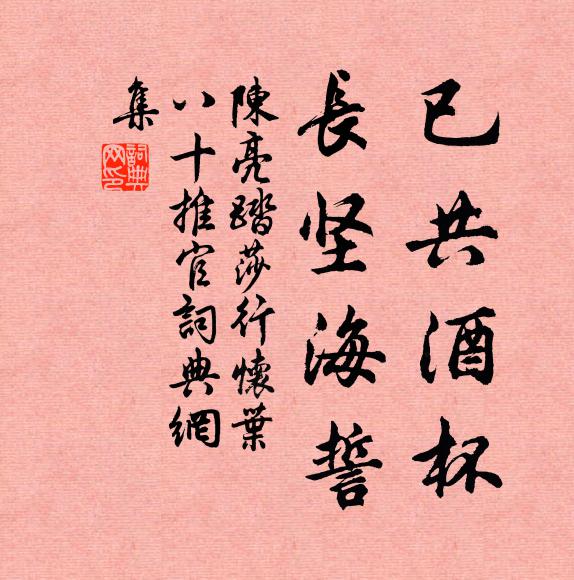 已共酒杯
長坚海誓
陳亮踏莎行懷葉
八十推官詞典網
集
詞典網印